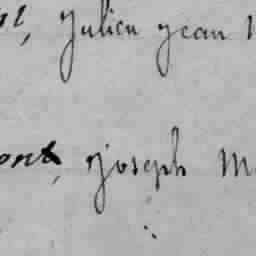 Julien jean
ont, joseph